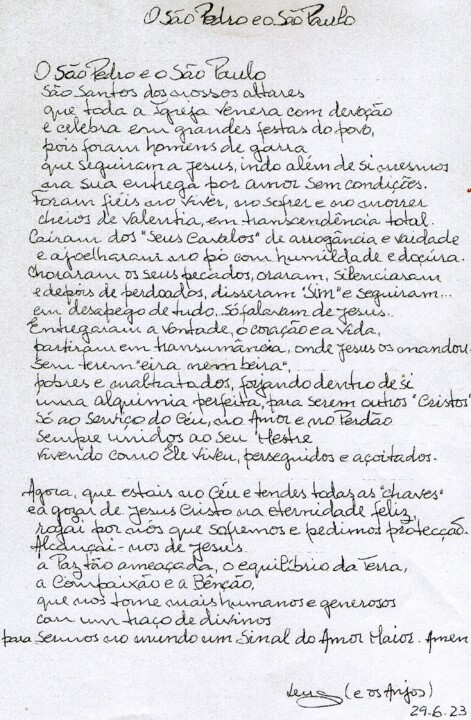 O São Pedro e o São Paulo
O São Pedro e o São Paulo
São Santos dos nossos altares
que toda a Igreja venera com devoção
e celebra em grandes festas do povo,
pois foram homens de garra
que seguiram a Jesus, indo além de si mesmos
na sua entrega por amor sem condições.
Foram fiéis no viver, no sofrer e no morrer
cheios de valentia, em transcendência total.
Caíram dos "Seus Cavalos" de arrogância e vaidade
e ajoelharam no pó com humildade e doçura.
Choraram os seus pecados, oraram, silenciaram
e depois de perdoados, disseram "Sim" e seguiram...
em desapego de tudo. Só falavam de Jesus.
Entregaram a vontade, o coração e a vida,
partiram em transumância, onde Jesus os mandou.
Sem terem "eira nem beira",
pobres e maltratados, forjando dentro de si
uma alquimia perfeita, para serem outros "Cristos"
Só ao serviço do Céu, no Amor e no Perdão
sempre unidos ao seu Mestre
vivendo como Ele viveu, perseguidos e açoitados.
Agora, que estais no Céu e tendes todas as "chaves"
e a gozar de Jesus Cristo na eternidade feliz,
rogai por nós que sofremos e pedimos protecção.
Alcançai-nos de Jesus
a Paz tão ameaçada, o equilíbrio da Terra,
a Compaixão e a Bênção,
que nos torne mais humanos e generosos
com um traço de divinos
para sermos no mundo um Sinal do Amor Maior. Amen
(e os Anjos)
29.6.23